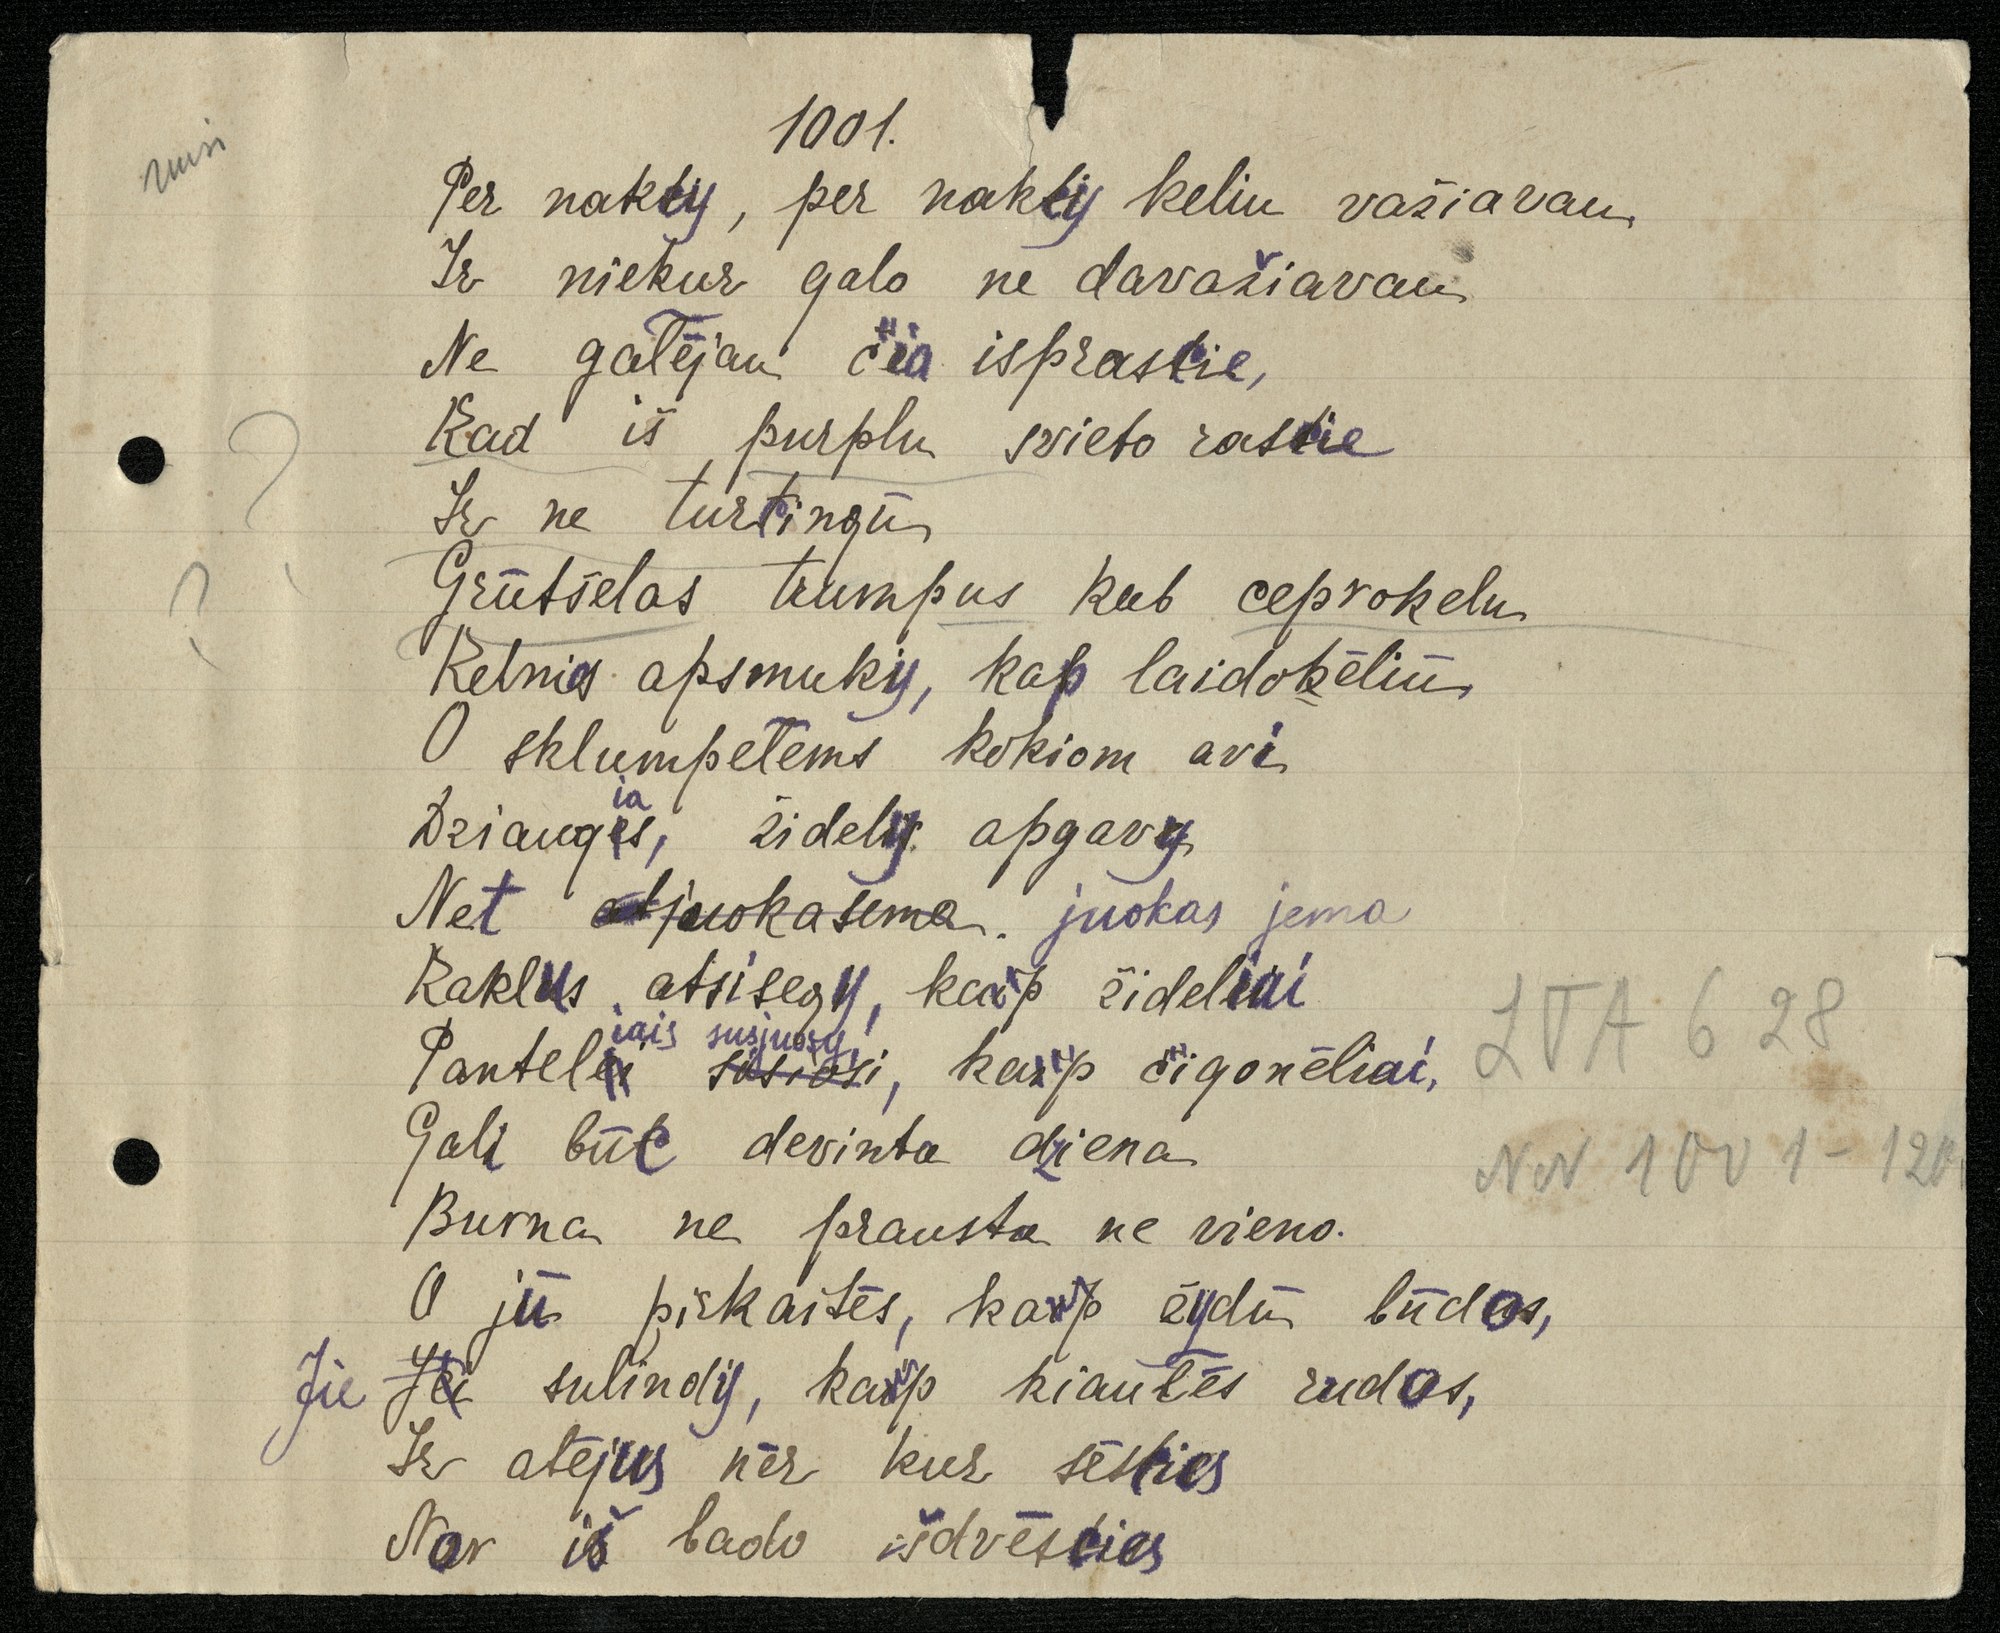 1001.
Per naktij, per naktij keliu važiavau
Ir niekur galo ne davažiavau
Ne galējau čia isprascie,
Kad iš purplu svieto rascie
Ir ne turcingū
Grūtšelas trumpus kab ceprokelu
Kelnias apsmukij, kap laidokēliū
O sklumpetems kokiom avi
ia
Dziauges, židelij apgavy
Net adjuokašema. juokas jema
Kaklus atsisegy, kaip žideliai
iais susjuosy,
Pantelei susiosi, kaip čigonēliai,
Gali būc devinta dziena
Burna ne prausta ne vieno.
O jū pirkaitēs, kaip žydū būdos,
Jie Jei sulindij, kaip kiautēs rudos,
Ir atējus nēr kur sēscies
Nor iš bado išdvēscies
LTA 628
NN 1001-120
? ?